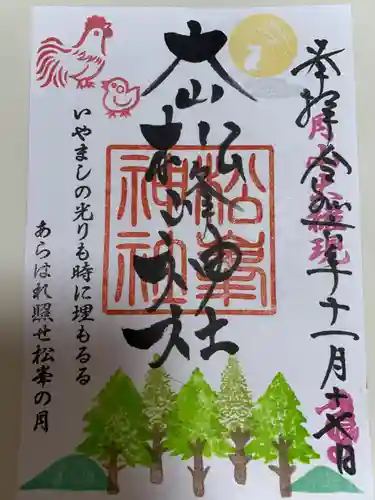 奉拝 令和 年十一月十七日
権現
大山
松峰神社
松峯
神社
いやましの光りも時に埋もるる
あらはれ照せ松峯の月